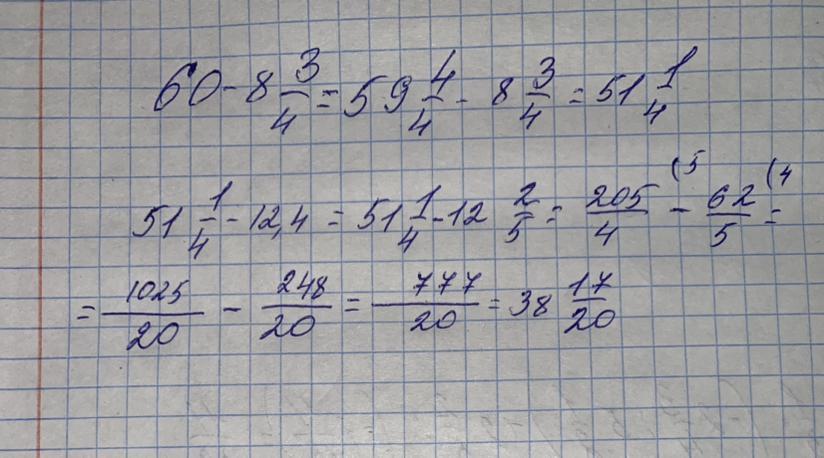 60 - 8 3/4 = 59 4/4 - 8 3/4 = 51 1/4
51 1/4 - 12,4 = 51 1/4 - 12 2/5 = 205/4 (5 - 62/5 (4 =
= 1025/20 - 248/20 = 777/20 = 38 17/20